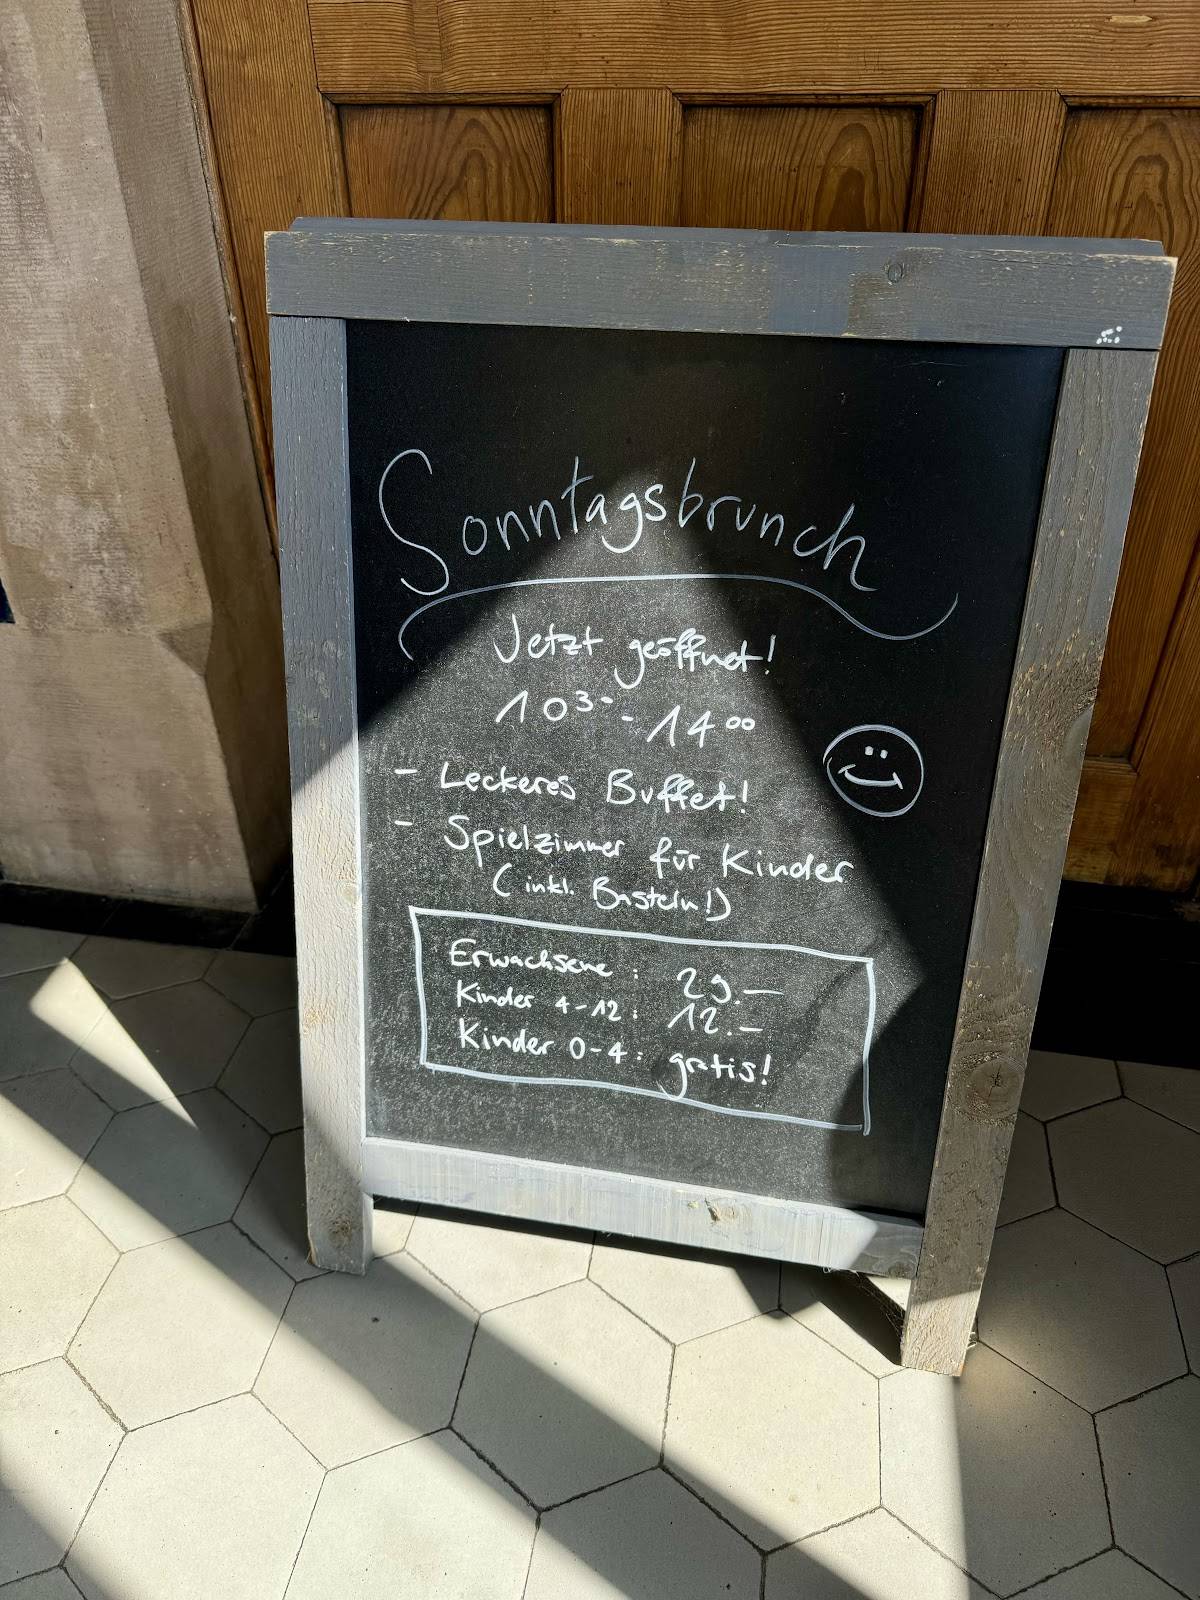 Sonntagsbrunch
Jetzt geöffnet!
10³⁻ - 14⁰⁰
- Leckeres Buffet!
- Spielzimmer für Kinder
(inkl. Basteln!)
Erwachsene : 29.—
Kinder 4-12 : 12.—
Kinder 0-4 : gratis!